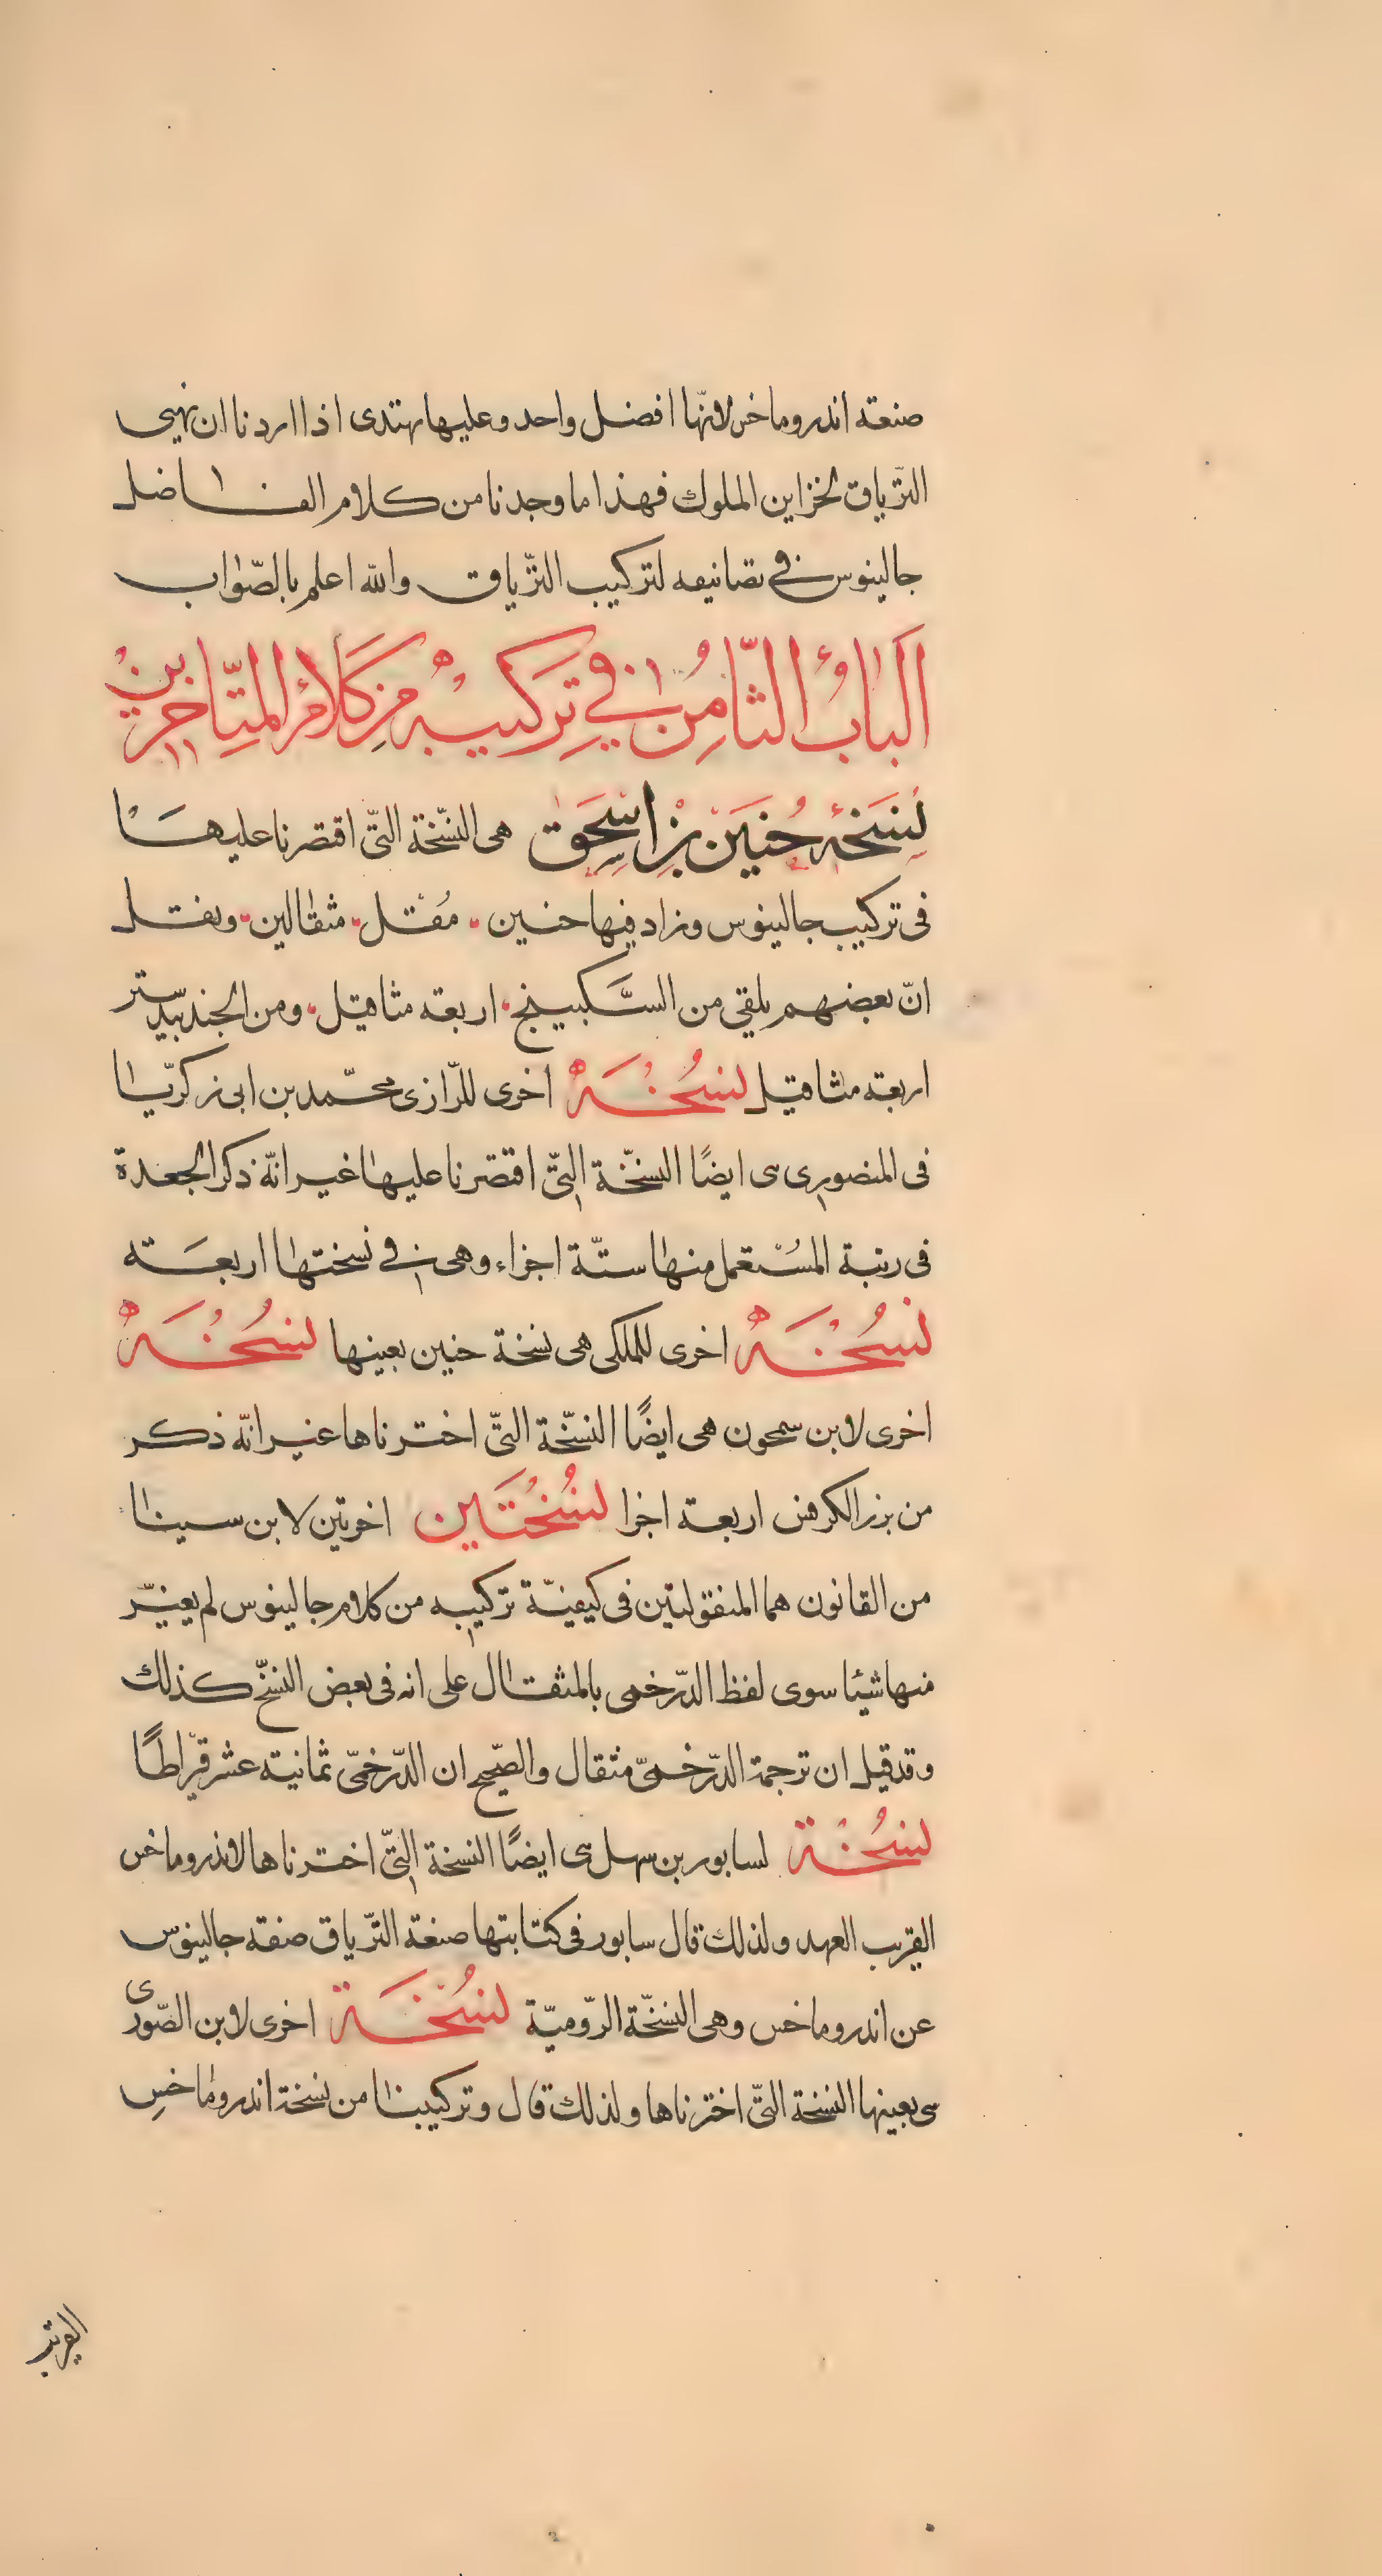 صنعته اندروماخس لانّها افضل واحد وعليها يهتدى اذا اردنا ان نهيى
الترّياق لخزاين الملوك فهذا ما وجدنا من كلام الفاضل
جالينوس في تصانيفه لتركيب الترّياق والله اعلم بالصّواب
اَلبابُ الثّامِنُ في تركيبه من كلام المتأخرين
نسخة حُنَين بن اسحق هى النسّخة التّى اقتصرنا عليها
فى تركيب جالينوس وزاد فيها حنين مُقل مثقالين ونقل
انّ بعضهم يلقي من السَّكبينج اربعة مثاقيل ومن الجندبيدستر
اربعة مثاقيل نسُخَة اخرى للرّازى محمّد بن ابى زكريّا
فى المنصورى هى ايضًا النسخّة التّى اقتصرنا عليها غير انّه ذكر الجعدة
فى رتبة المسُتعمل منها ستّة اجزاء وهى في نسختها اربعَة
نسُخَة اخرى للملكى هى نسخة حنين بعينها نسُخَة
اخرى لابن سمحون هى ايضًا النسّخة التّى اخترناها غير انّه ذكر
من بزر الكرفس اربعة اجزا نسُختَين اخرتين لابن سينا
من القانون هما المنقولتين فى كيفيّة تركيبه من كلام جالينوس لم يغيّر
منها شيئا سوى لفظ الدّرخمى بالمثقال على انه فى بعض النسّخ كذلك
وقد قيل ان ترجمة الدّرخمىّ مثقال والصّحيح ان الدّرخمىّ ثمانية عشر قيّراطًا
نسُخة لسابور بن سهل هى ايضًا النسخة التّى اخترناها لاندروماخس
القريب العهد ولذلك قال سابور فى كتابتها صنعة الترّياق صنعة جالينوس
عن اندروماخس وهى النسخّة الرّوميّة نسُخَة اخرى لابن الصّورى
هى بعينها النسخة التّى اخترناها ولذلك قال وتركيبنا من نسخة اندروماخس
القريب